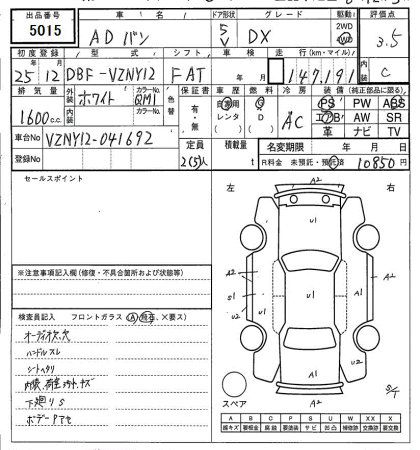 出品番号 車名 ドア形状 グレード 駆動 評価点
5015 ADバン 5 V DX 2WD 4WD 3.5
初度登録 型式 シフト 車検 走行(km・マイル) 内装
25年12月 DBF-VZNY12 FAT 年 月 147,191 C
排気量 外装 ホワイト カラーNo. QM1 色替 保証書 車歴 燃料 冷房 装備(純正部品に限る)
1600c.c. 内装 カラーNo. 有・無 自家用 レンタ G D AC PS PW ABS
エアB AW SR
革 ナビ TV
車台No VZNY12-041692 定員 積載量 名変期限 年 月 日
登録No 2(5)人 t R料金 未預託・預託済 10850円
セールスポイント
左 右
A2
U1
A2 A1 A2
S1 U1 U2
U2
A1
A1
S/T
A2
スペア
※注意事項記入欄(修復・不具合箇所および状態等)
検査員記入 フロントガラス(A 飛石、×要ス)
オーディオ欠、穴
ハンドルスレ
内張、荷室キズ
下廻りS
ボデーアセ
A B C P S U W X XX
線キズ 要板金 腐蝕 要塗装 サビ 凹凸 補修跡 要交換 交換跡